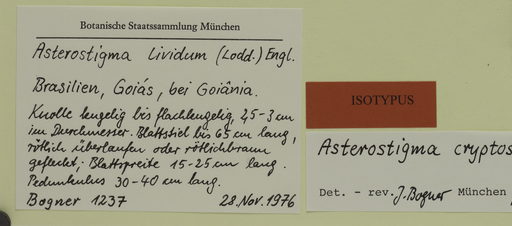 Botanische Staatssammlung München
Asterostigma lividum (Lodd.) Engl.
Brasilien, Goiás, bei Goiânia.
Knolle kugelig bis flachkugelig, 2,5-3 cm
im Durchmesser. Blattstiel bis 65 cm lang,
rötlich überlaufen oder rötlichbraun
gefleckt; Blattspreite 15-25 cm lang.
Pedunkulus 30-40 cm lang.
Bogner 1237 28. Nov. 1976
ISOTYPUS
Asterostigma cryptos
Det. - rev. J. Bogner München